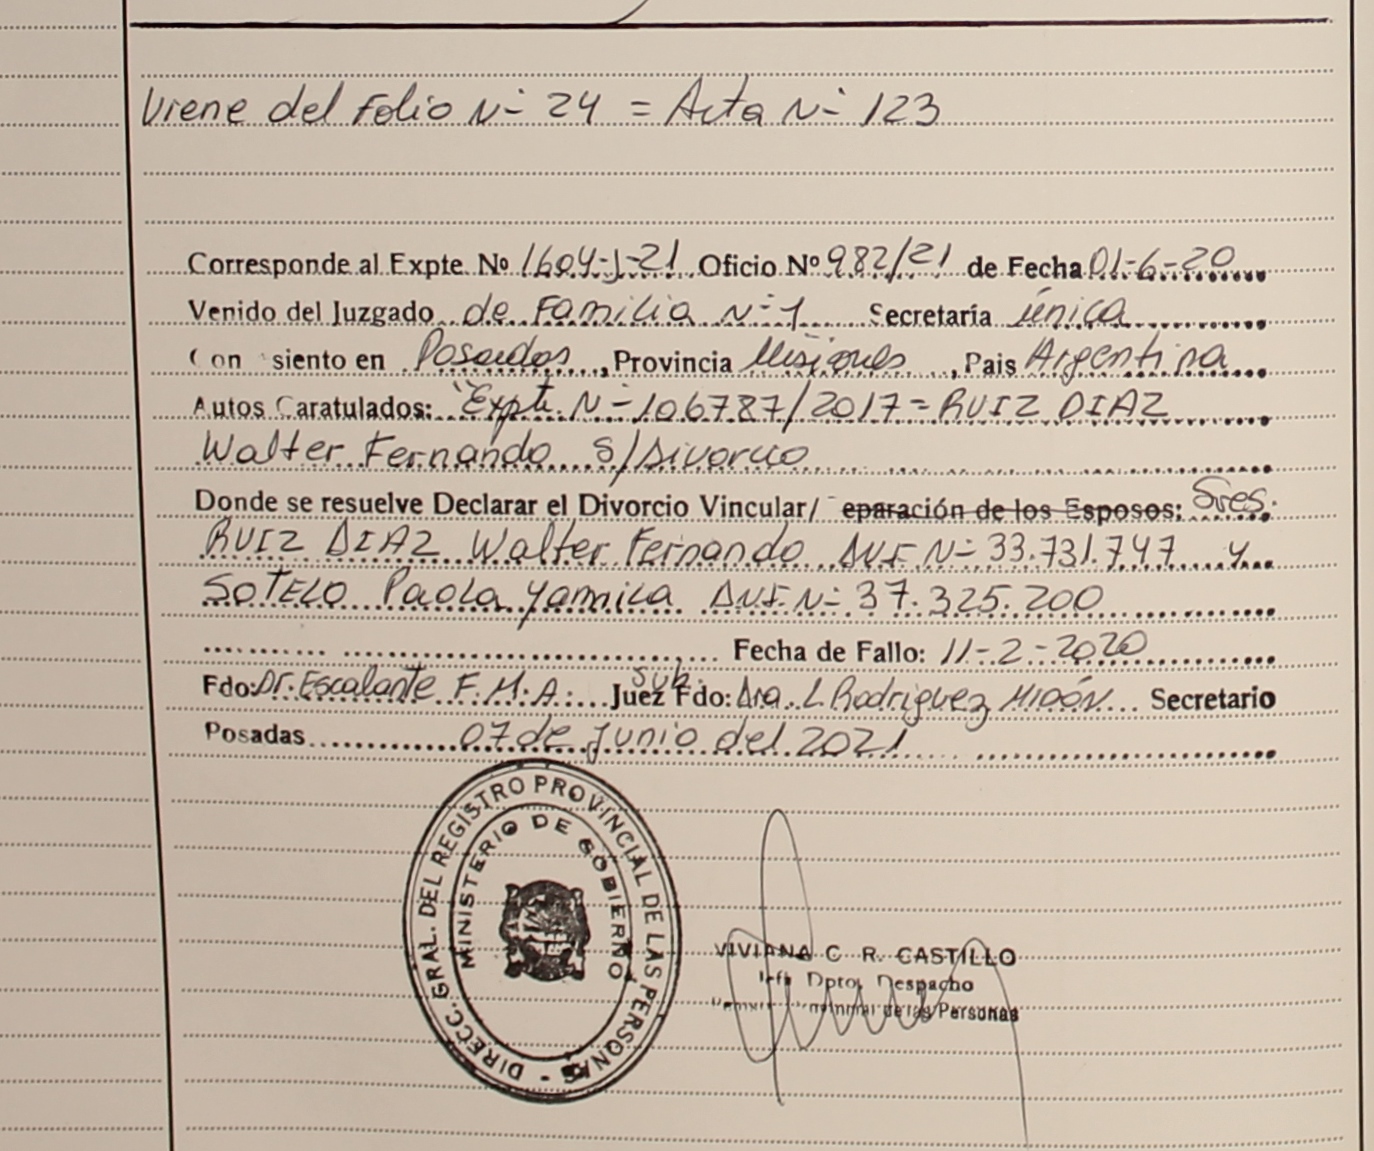 Viene del Folio Nº 24 = Acta Nº 123
Corresponde al Expte. Nº 1604-J-21 Oficio Nº 982/21 de Fecha 01-6-20
Venido del Juzgado de Familia Nº 1 Secretaría única
Con siento en Posadas, Provincia Misiones, Pais Argentina
Autos Caratulados: "Expte. Nº 106787/2017 = RUIZ DIAZ
Walter Fernando S/Divorcio
Donde se resuelve Declarar el Divorcio Vincular/ eparación de los Esposos: Sres.
RUIZ DIAZ Walter Fernando DNI Nº 33.731.747 y
SOTELO Paola Yamila DNI Nº 37.325.200
Fecha de Fallo: 11-2-2020
Fdo: Dr. Escalante F.M.A. Juez Sub. Fdo: Dra. L Rodriguez MIDÓN Secretario
Posadas 07 de Junio del 2021
DIRECC. GRAL. DEL REGISTRO PROVINCIAL DE LAS PERSONAS -
MINISTERIO DE GOBIERNO
VIVIANA C. R. CASTILLO
Dpto. Despacho
de las Personas